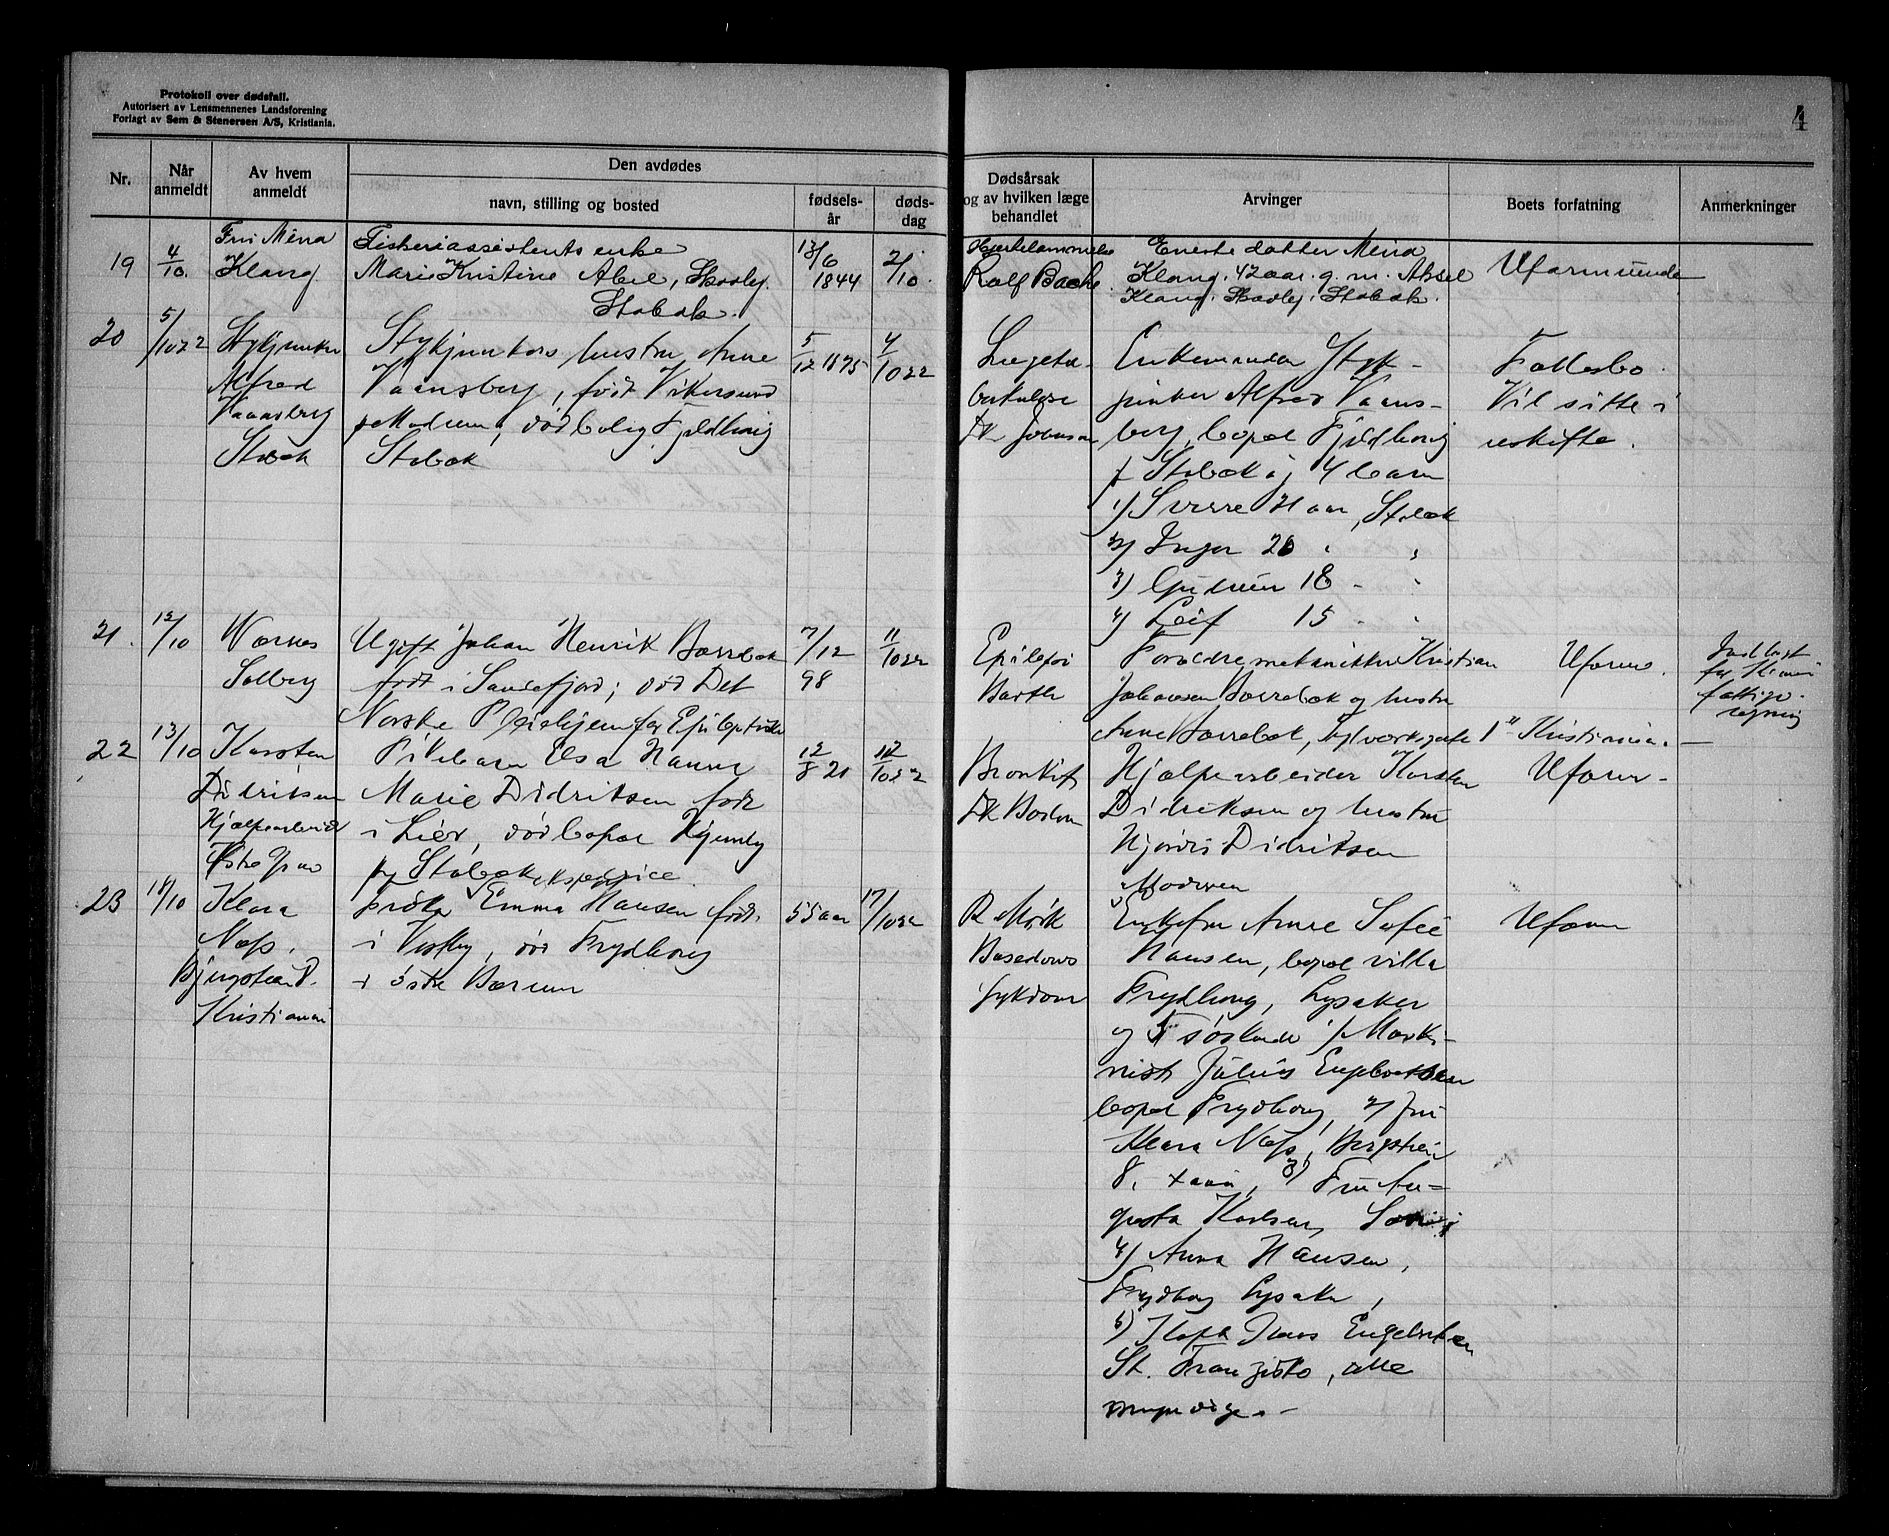 Protokoll over dødsfall.
Autorisert av Lensmennenes Landsforening
Forlagt av Sem & Stenersen A/S, Kristiania.
4
Nr.
Når anmeldt
Av hvem anmeldt
Den avdødes
navn, stilling og bosted
fødsels-år
døds-dag
Dødsårsak og av hvilken læge behandlet
Arvinger
Boets forfatning
Anmerkninger
19
4/10.
Fru Mina
Klang.
Fiskeriassistents enke
Marie Kristine Abel,
Stabæk.
13/6
1844
2/10.
Hjertelammelse
Rolf Backe.
Eneste datter Mina
Klang. 42 aar. g. m. Aksel
Klang. Stabæk.
Uformuende
20
5/10 22
Stykjunker
Alfred
Vaansberg
Stabæk
Stykjunkers hustru Anne
Vaansberg, født Vikersund
på Modum, død bolig Fjeldhoug
Stabæk
5/12 1875
4/10 22
Lungetu-
berkulose
Dr Johnson
Enkemanden Styk-
junker Alfred Vaans-
berg, bopæl Fjeldhoug
p Stabæk og 4 barn
1) Sverre 21 aar, Stabæk
2) Inger 20 " "
3) Gudrun 18 - "
4) Leif 15 - "
Fællesbo.
Vil sitte i
uskifte.
21.
12/10
Wærnes
Solberg
Ugift Johan Henrik Borrebæk
født i Sandefjord; død Det
Norske Pleiehjem for Epileptiske
7/12
98
11/10 22
Epilepsi
Barth
Forældre mekaniker Kristian
Johansen Borrebæk og hustru
Anne Borrebæk, 1" Kristiania.
Uform.
Indlagt
for
fattigv.
regning
22
13/10
Karsten
Didriksen
Hjælpearbeider
Østre
Pikebarn Elsa Hanne
Marie Didriksen født
i Lier, død bopæl
pr Stabæk
12/8 21
12/10 22
Bronkit
Dr
Hjælpearbeider Karsten
Didriksen og hustru
Hjørdis Didriksen
Uform -
23
18/10
Klara
Næss,
Kristiania
ekspeditrice
frøken Emma Hansen født
i Vestby, død Frydborg
i Østre Bærum
55 aar
17/10 22
R Mørk
Basedows
sykdom
Moderen
Enkefru Anne Sofie
Hansen, bopæl villa
Frydborg, Lysaker
og 5 søskende 1) Maski-
nist Julius Engebretsen
bopæl Frydborg, 2) fru
Klara Næss,
8, Xania, 3) Fru Au-
gusta Karlsen,
4) Anna Hansen,
Frydborg Lysaker,
5) Hans Engebretsen
St. Franzisko, alle
myndige. -
Uform